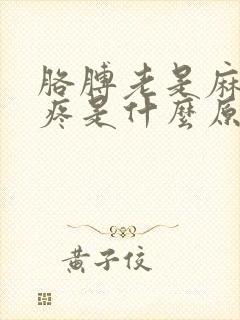 胳膊老是麻
疼是什麼原
黄子佼